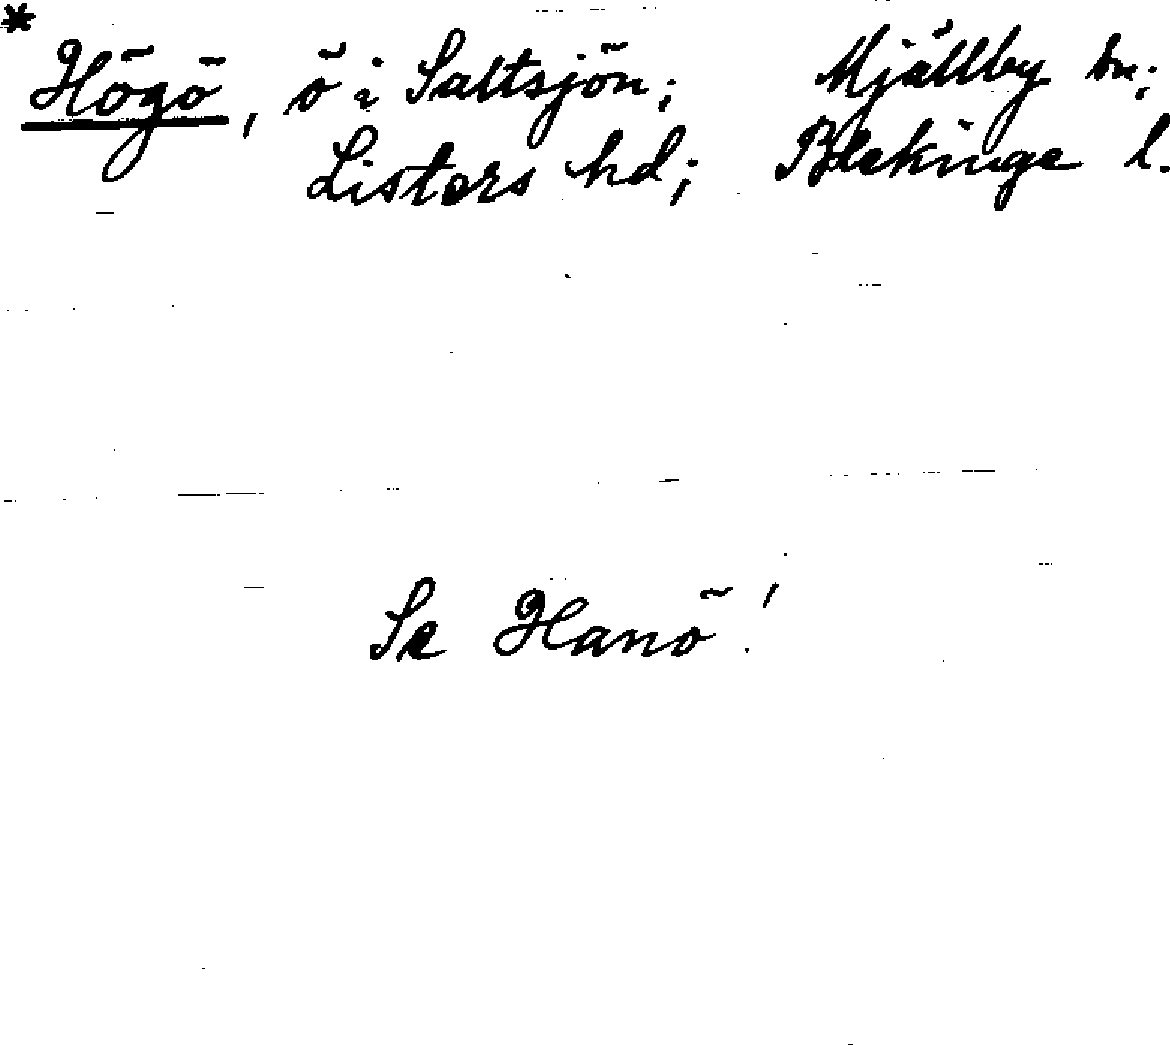 * Högö, ö i Saltsjön; Mjällby sn;
Listers hd; Blekinge l.
Se Hanö!